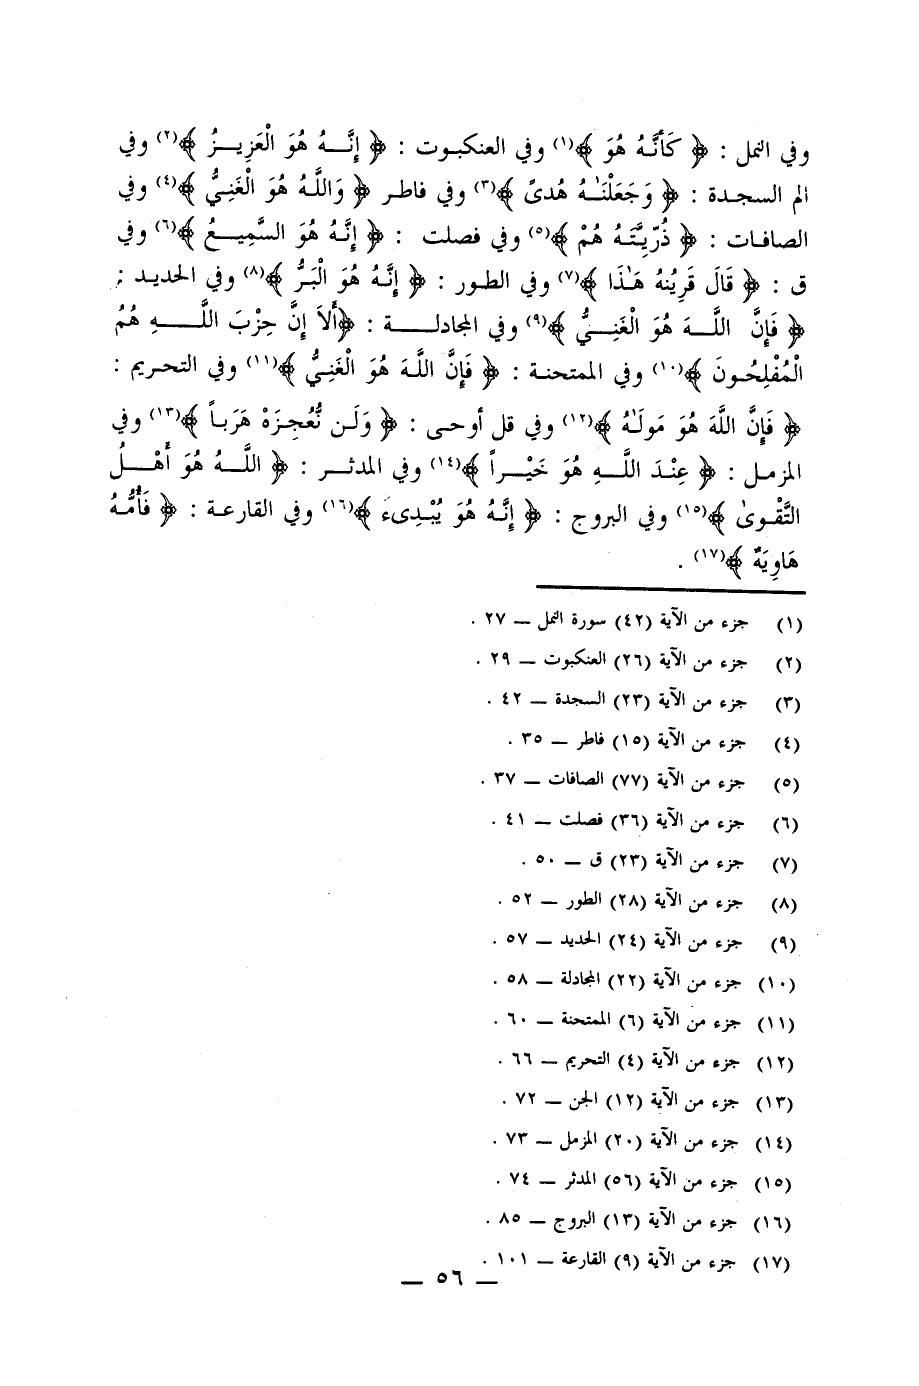 وفي النمل : ﴿ كَأَنَّهُ هُوَ ﴾(١) وفي العنكبوت : ﴿ إِنَّــهُ هُوَ الْعَزِيــزُ ﴾(٢) وفي
الم السجدة : ﴿ وَجَعَلْنَٰـهُ هُدىً ﴾(٣) وفي فاطر ﴿ وَاللَّهُ هُوَ الْغَنِيُّ ﴾(٤) وفي
الصافات : ﴿ ذُرِّيَّتَهُ هُمْ ﴾(٥) وفي فصلت : ﴿ إِنَّهُ هُوَ السَّمِيــعُ ﴾(٦) وفي
ق : ﴿ قَالَ قَرِينُهُ هَٰذَا ﴾(٧) وفي الطور : ﴿ إِنَّهُ هُوَ الْبَرُّ ﴾(٨) وفي الحديد :
﴿ فَإِنَّ اللَّــهَ هُوَ الْغَنِــيُّ ﴾(٩) وفي المجادلــــة : ﴿أَلاَ إِنَّ حِزْبَ اللَّــــهِ هُمُ
الْمُفْلِحُونَ ﴾(١٠) وفي الممتحنة : ﴿ فَإِنَّ اللَّهَ هُوَ الْغَنِيُّ ﴾(١١) وفي التحريم :
﴿ فَإِنَّ اللَّهَ هُوَ مَولَـٰهُ ﴾(١٢) وفي قل أوحى : ﴿ وَلَن نُّعْجِزَهْ هَرَباً ﴾(١٣) وفي
المزمـل : ﴿ عِنْـدَ اللَّــهِ هُوَ خَيْـراً ﴾(١٤) وفي المدثـر : ﴿ اللَّــهُ هُوَ أَهْــلُ
التَّقْوىٰ ﴾(١٥) وفي البروج : ﴿ إِنَّهُ هُوَ يُبْدِىءُ ﴾(١٦) وفي القارعـة : ﴿ فَأُمُّـهُ
هَاوِيَةٌ ﴾(١٧) .
(١) جزء من الآية (٤٢) سورة النمل ــ ٢٧ .
(٢) جزء من الآية (٢٦) العنكبوت ــ ٢٩ .
(٣) جزء من الآية (٢٣) السجدة ــ ٤٢ .
(٤) جزء من الآية (١٥) فاطر ــ ٣٥ .
(٥) جزء من الآية (٧٧) الصافات ــ ٣٧ .
(٦) جزء من الآية (٣٦) فصلت ــ ٤١ .
(٧) جزء من الآية (٢٣) ق ــ ٥٠ .
(٨) جزء من الآية (٢٨) الطور ــ ٥٢ .
(٩) جزء من الآية (٢٤) الحديد ــ ٥٧ .
(١٠) جزء من الآية (٢٢) المجادلة ــ ٥٨ .
(١١) جزء من الآية (٦) الممتحنة ــ ٦٠ .
(١٢) جزء من الآية (٤) التحريم ــ ٦٦ .
(١٣) جزء من الآية (١٢) الجن ــ ٧٢ .
(١٤) جزء من الآية (٢٠) المزمل ــ ٧٣ .
(١٥) جزء من الآية (٥٦) المدثر ــ ٧٤ .
(١٦) جزء من الآية (١٣) البروج ــ ٨٥ .
(١٧) جزء من الآية (٩) القارعة ــ ١٠١ .
ــ ٥٦ ــ